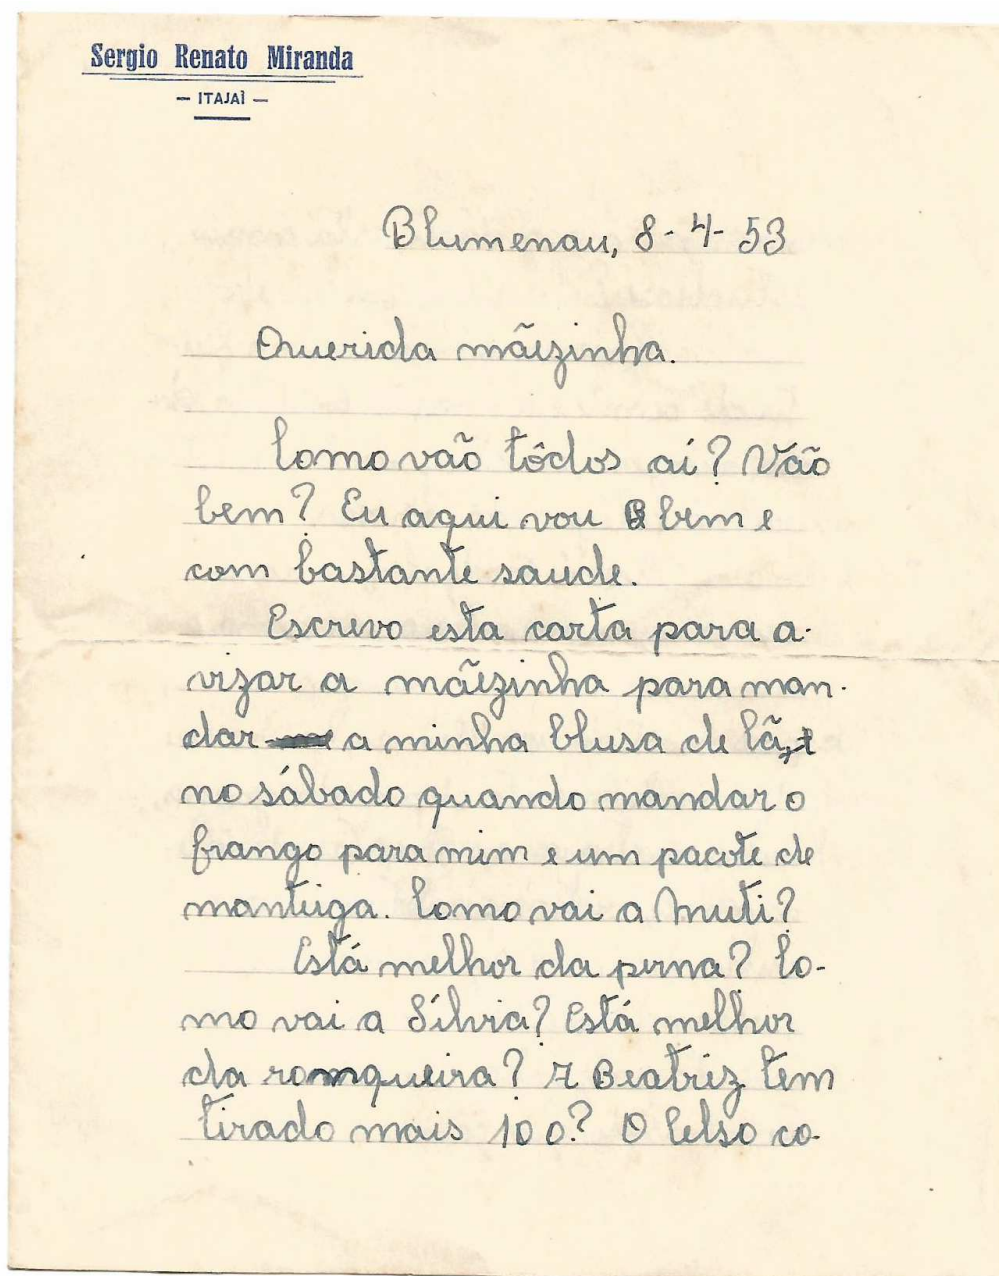 Sergio Renato Miranda
— ITAJAÌ —
Blumenau, 8-4-53
Querida mãezinha.
Como vão todos aí? Vão
bem? Eu aqui vou bem e
com bastante saude.
Escrevo esta carta para a-
vizar a mãezinha para man-
dar a minha blusa de lã,
no sábado quando mandar o
frango para mim e um pacote de
manteiga. Como vai a Muti?
Está melhor da perna? Co-
mo vai a Sílvia? Está melhor
da romqueira? A Beatriz tem
tirado mais 100? O Celso co-